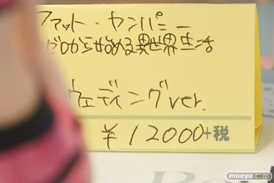 フマット・カンパニー
ゼロから始める異世界生活
ウェディングver.
¥12000+税